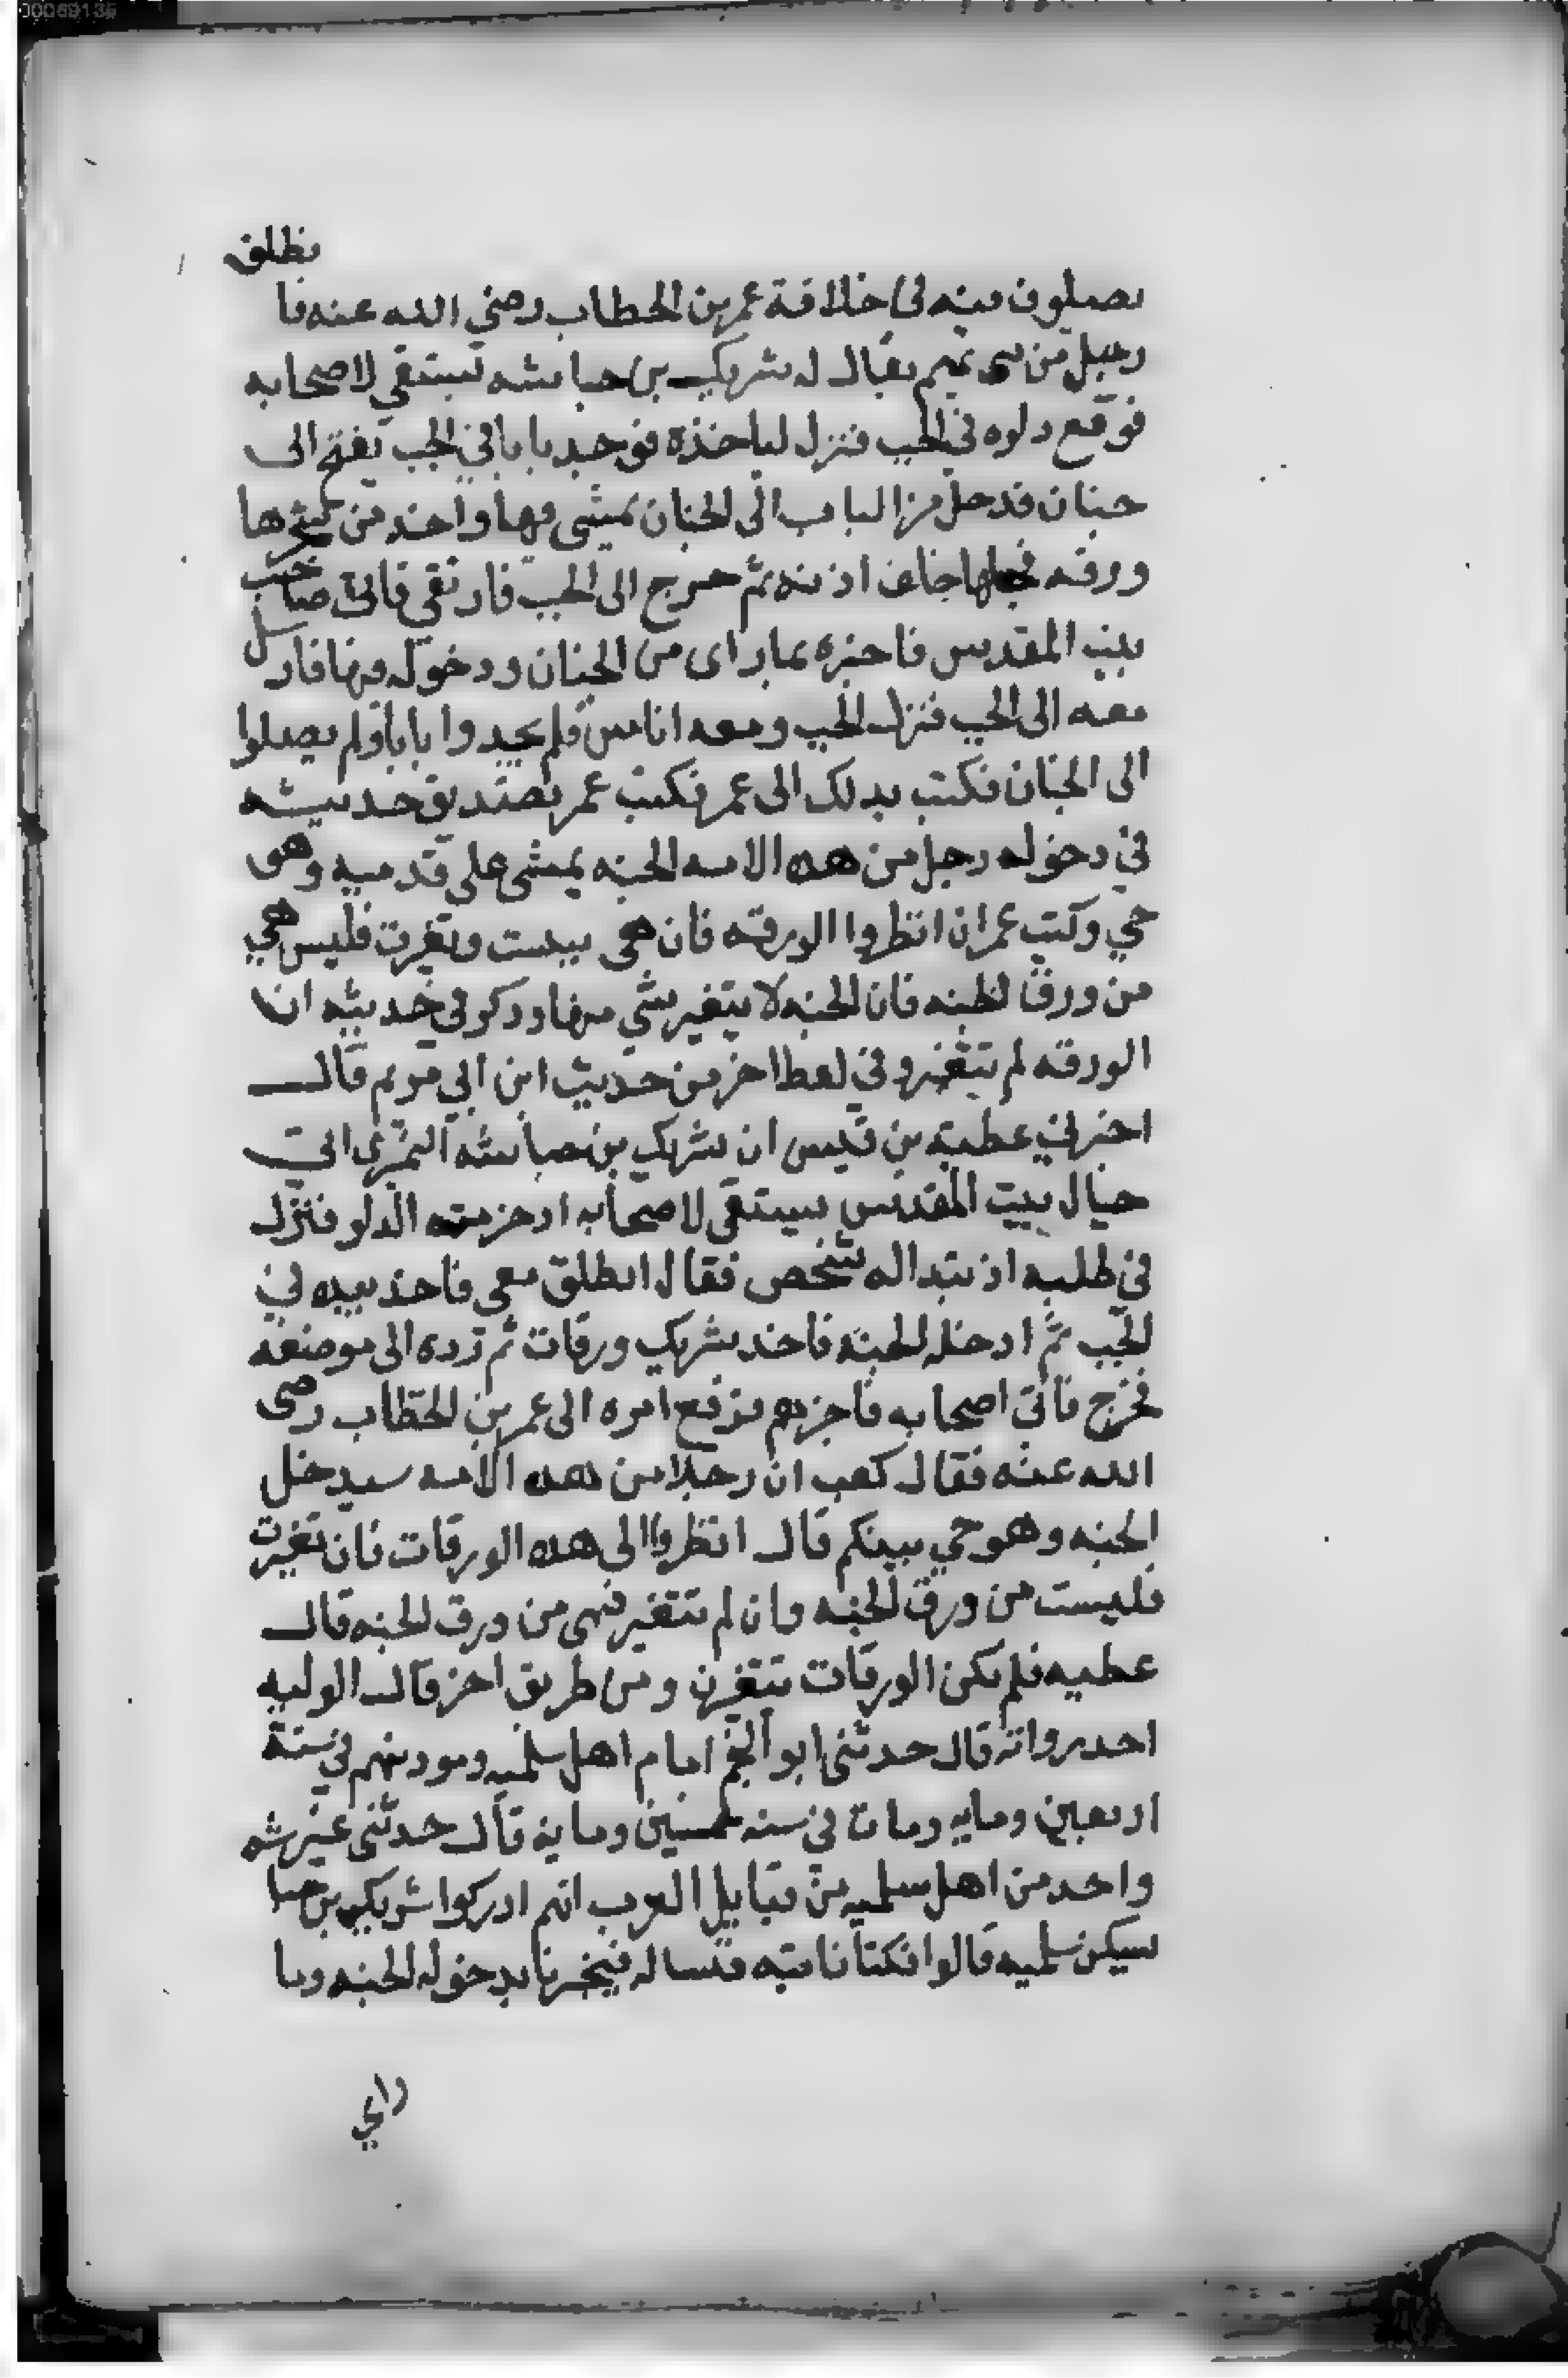 00069135
يصلون فيه في خلافة عمر بن الخطاب رضي الله عنه فانطلق
رجل من بني تميم يقال له شريك بن حباشه يستقي لاصحابه
فوقع دلوه في الجب فنزل لياخذه فوجد بابا في الجب يفتح الى
جنان فدخل من الباب الى الجنان يمشي فيها واخذ من شجرها
ورقه فجعلها خلف اذنه ثم خرج الى الجب فارتقى فاتى صاحب
بيت المقدس فاخبره بما راى من الجنان ودخوله فيها فارسل
معه الى الجب فنزل الجب ومعه اناس فلم يجدوا بابا ولم يصلوا
الى الجنان فكتب بذلك الى عمر فكتب عمر بصدق حديثه
في دخوله رجل من هذه الامه الجنه يمشي على قدميه وهو
حي وكتب عمر ان انظروا الورقه فان هي يبست وتغيرت فليس هي
من ورق الجنه فان الجنه لا يتغير شي منها وذكر في حديثه ان
الورقه لم تتغير وفي لفظ اخر من حديث ابن ابي مريم قال
اخبرني عطيه بن قيس ان شريك بن حباشه النميري اتى
حيال بيت المقدس يستقي لاصحابه اذ خر منه الدلو فنزل
في طلبه اذ تبدا له شخص فقال انطلق معي فاخذ بيده في
الجب ثم ادخله الجنه فاخذ شريك ورقات ثم رده الى موضعه
فخرج فاتى اصحابه فاخبرهم فرفع امره الى عمر بن الخطاب رضى
الله عنه فقال كعب ان رجلا من هذه الامه سيدخل
الجنه وهو حي بينكم قال انظروا الى هذه الورقات فان تغيرت
فليست من ورق الجنه وان لم تتغير فهي من ورق الجنه قال
عطيه فلم تكن الورقات تتغيرن ومن طريق اخر قال الوليد
احد رواته قال حدثني ابو النجم امام اهل سلميه وموذنهم في سنة
اربعين ومايه ومات في سنه خمسين ومايه قال حدثني غير
واحد من اهل سلميه من قبايل العرب انهم ادركوا شريك بن حباشه
يسكن سلميه قالوا فكنا ناتيه فنساله فيخبرنا بدخوله الجنه وما
راى